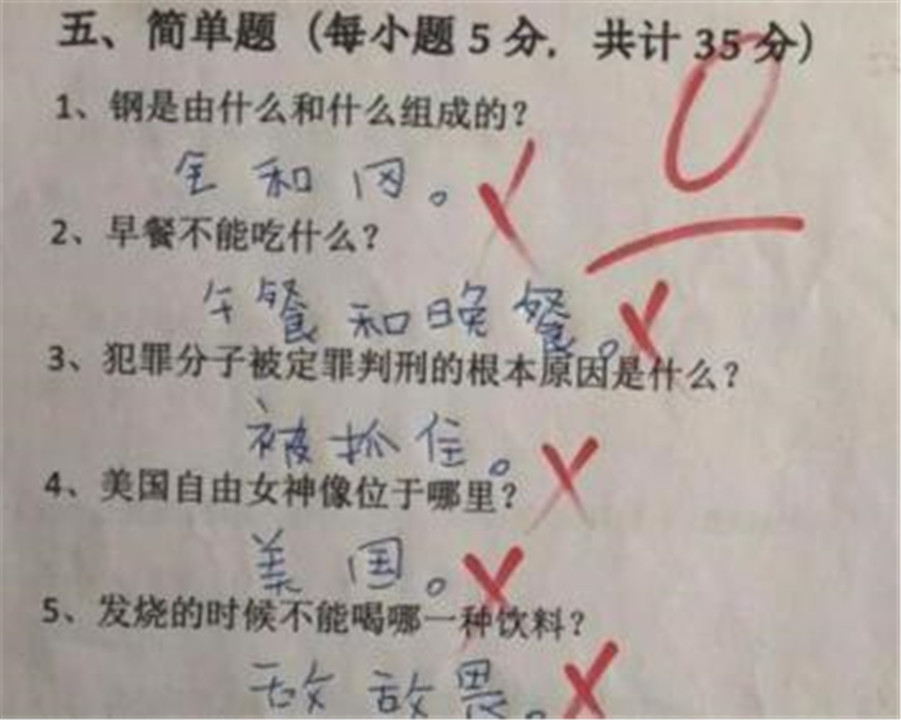 五、简单题（每小题5分．共计35分）
0
1、钢是由什么和什么组成的？
钅和冈。
2、早餐不能吃什么？
午餐和晚餐。
3、犯罪分子被定罪判刑的根本原因是什么？
被抓住。
4、美国自由女神像位于哪里？
美国。
5、发烧的时候不能喝哪一种饮料？
敌敌畏。